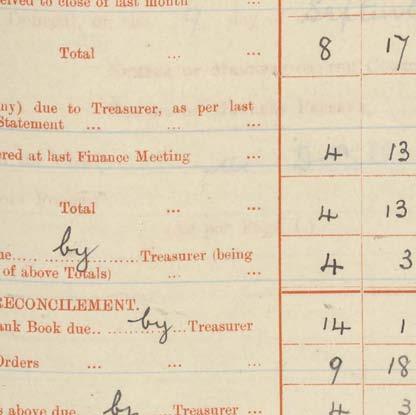 ceived to close of last month ...
Total ... ... 8 17
any) due to Treasurer, as per last
Statement ... ... ...
ered at last Finance Meeting ... 4 13
Total ... ... 4 13
ue.... by ....Treasurer (being
of above Totals) ... ... 4 3
RECONCILEMENT.
ank Book due.. by ...Treasurer 14 1
Orders ... ... ... 9 18
s above due by Treasurer ... 4 3